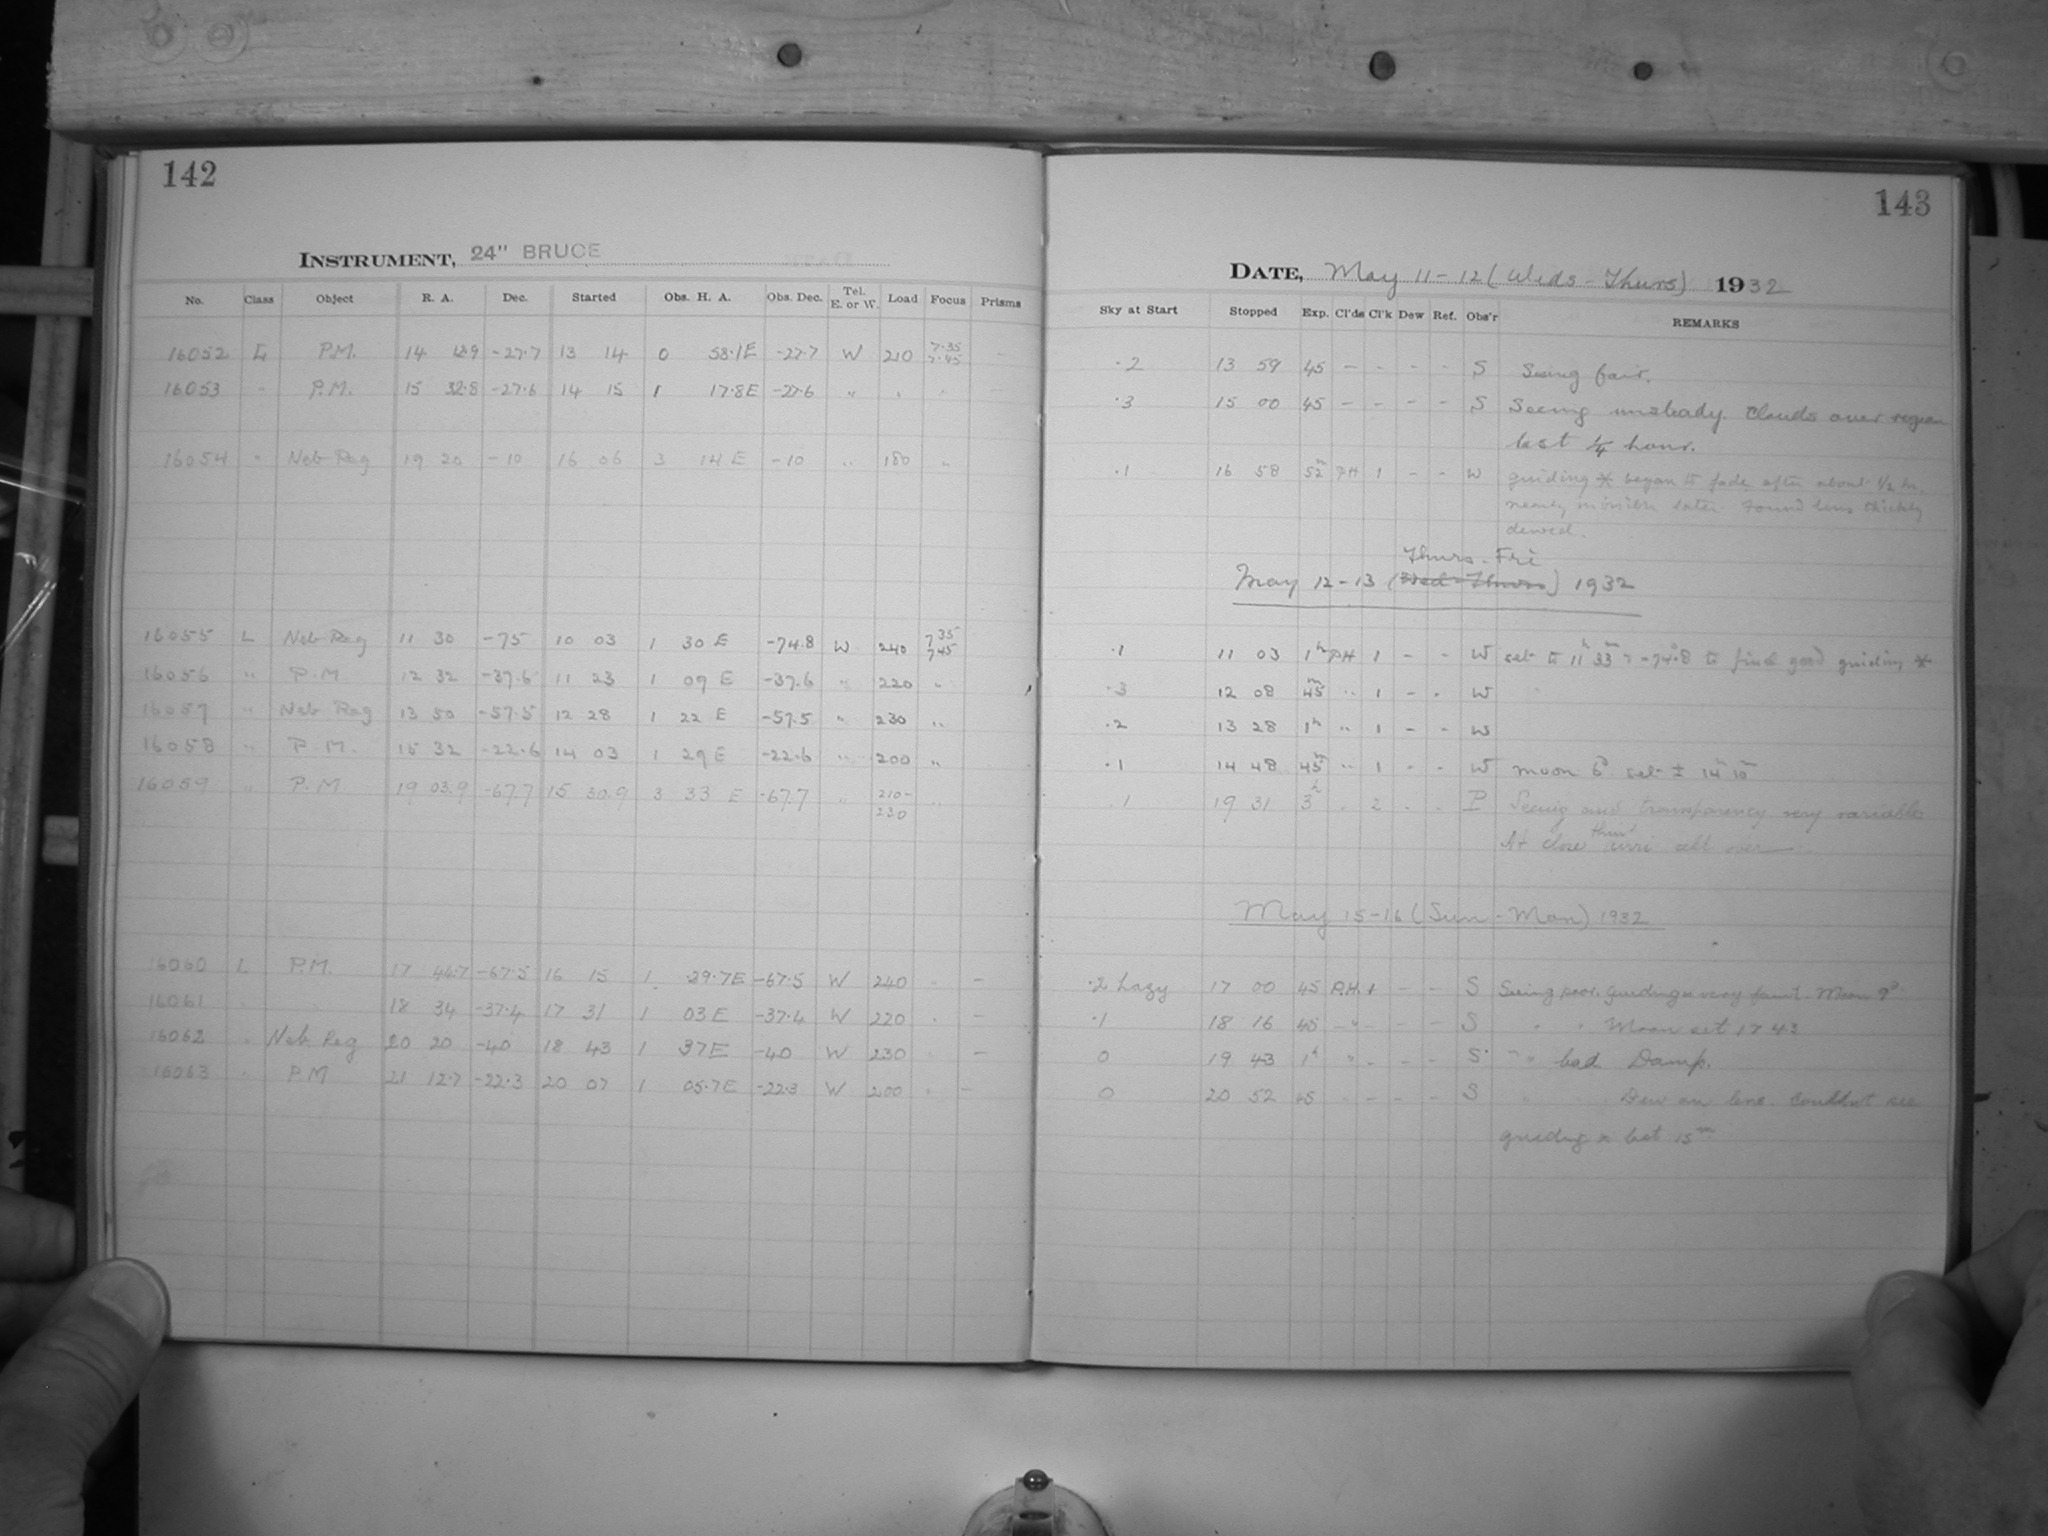 142
INSTRUMENT, 24" BRUCE
No. Class Object R. A. Dec. Started Obs. H. A. Obs. Dec. Tel. E. or W. Load Focus Prisms
16052 L P.M. 14 12.9 -27.7 13 14 0 58.1E -27.7 W 210 7.35 7.45 -
16053 " P.M. 15 32.8 -27.6 14 15 1 17.8E -27.6 " " "
16054 " Neb Reg 19 20 -10 16 06 3 14 E -10 " 180 "
16055 L Neb Reg 11 30 -75 10 03 1 30 E -74.8 W 240 7.35 7.45
16056 " P.M 12 32 -37.6 11 23 1 09 E -37.6 " 220 "
16057 " Neb Reg 13 50 -57.5 12 28 1 22 E -57.5 " 230 "
16058 " P.M. 15 32 -22.6 14 03 1 29 E -22.6 " 200 "
16059 " P.M 19 03.9 -67.7 15 30.9 3 33 E -67.7 " 210-
230
16060 L P.M. 17 44.7 -67.5 16 15 1 29.7E -67.5 W 240 " -
16061 " " 18 34 -37.4 17 31 1 03E -37.4 W 220 " -
16062 " Neb. Reg 20 20 -40 18 43 1 37E -40 W 230 " -
16063 " P.M 21 12.7 -22.3 20 07 1 05.7E -22.3 W 200 " -
143
DATE, May 11-12 (Weds-Thurs) 1932
Sky at Start Stopped Exp. Cl'ds Cl'k Dew Ref. Obs'r REMARKS
.2 13 59 45 - - - - S Seeing fair.
.3 15 00 45 - - - - S Seeing unsteady. Clouds over region
last 1/4 hour.
.1 16 58 52m PH 1 - - W guiding * began to fade after about 1/2 hr.
nearly invisible later. Found lens thickly
dewed.
Thurs. Fri
May 12-13 (Wed-Thurs) 1932
.1 11 03 1h PH 1 - - W set to 11h 33m, -74°.8 to find good guiding *
.3 12 08 45m " 1 - - W
.2 13 28 1h " 1 - - W
.1 14 48 45m " 1 - - W moon 6d set ± 14h 10m
.1 19 31 3h " 2 - - P Seeing and transparency very variable
At close thin cirri all over
May 15-16 (Sun-Mon) 1932
.2 hazy 17 00 45 P.H. 1 - - S Seeing poor. Guiding * very faint. Moon 9d
.1 18 16 45 - " - - - S " " Moon set 17 43
0 19 43 1h " - - - S " " bad Damp.
0 20 52 45 " - - - S " Dew on lens. Couldn't see
guiding * last 15m